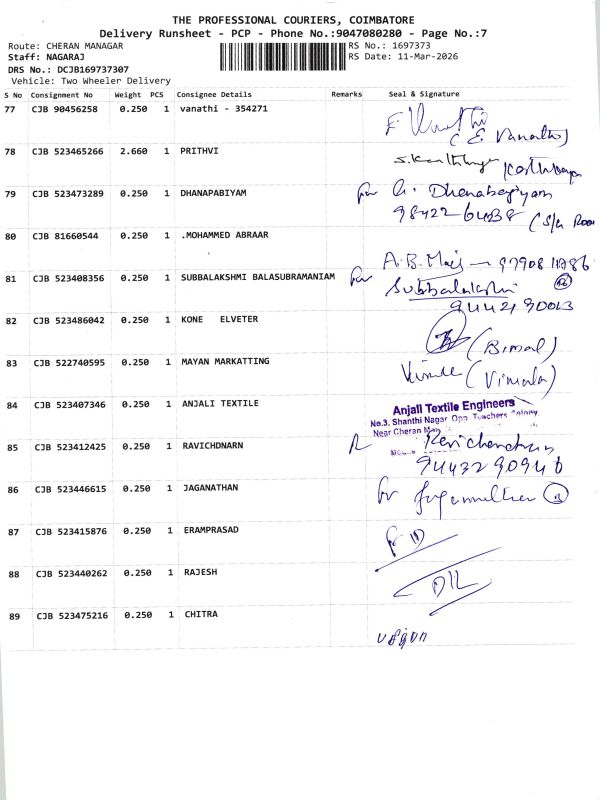 THE PROFESSIONAL COURIERS, COIMBATORE
Delivery Runsheet - PCP - Phone No.:9047080280 - Page No.:7
Route: CHERAN MANAGAR RS No.: 1697373
Staff: NAGARAJ RS Date: 11-Mar-2026
DRS No.: DCJB169737307
Vehicle: Two Wheeler Delivery
S No Consignment No Weight PCS Consignee Details Remarks Seal & Signature
77 CJB 90456258 0.250 1 vanathi - 354271
(E Vanathi)
78 CJB 523465266 2.660 1 PRITHVI
79 CJB 523473289 0.250 1 DHANAPABIYAM for Dhanabagiyam
98422 26438
80 CJB 81660544 0.250 1 .MOHAMMED ABRAAR
A.B.
81 CJB 523408356 0.250 1 SUBBALAKSHMI BALASUBRAMANIAM for Subbalakshmi
82 CJB 523486042 0.250 1 KONE ELVETER
(Bimal)
83 CJB 522740595 0.250 1 MAYAN MARKATTING
(Vimala)
84 CJB 523407346 0.250 1 ANJALI TEXTILE Anjali Textile Engineers
No.3, Shanthi Nagar Opp. Teachers Colony
Near Cheran
85 CJB 523412425 0.250 1 RAVICHDNARN Ravichandran
94432 90946
86 CJB 523446615 0.250 1 JAGANATHAN for Jagannathan
87 CJB 523415876 0.250 1 ERAMPRASAD
88 CJB 523440262 0.250 1 RAJESH
89 CJB 523475216 0.250 1 CHITRA